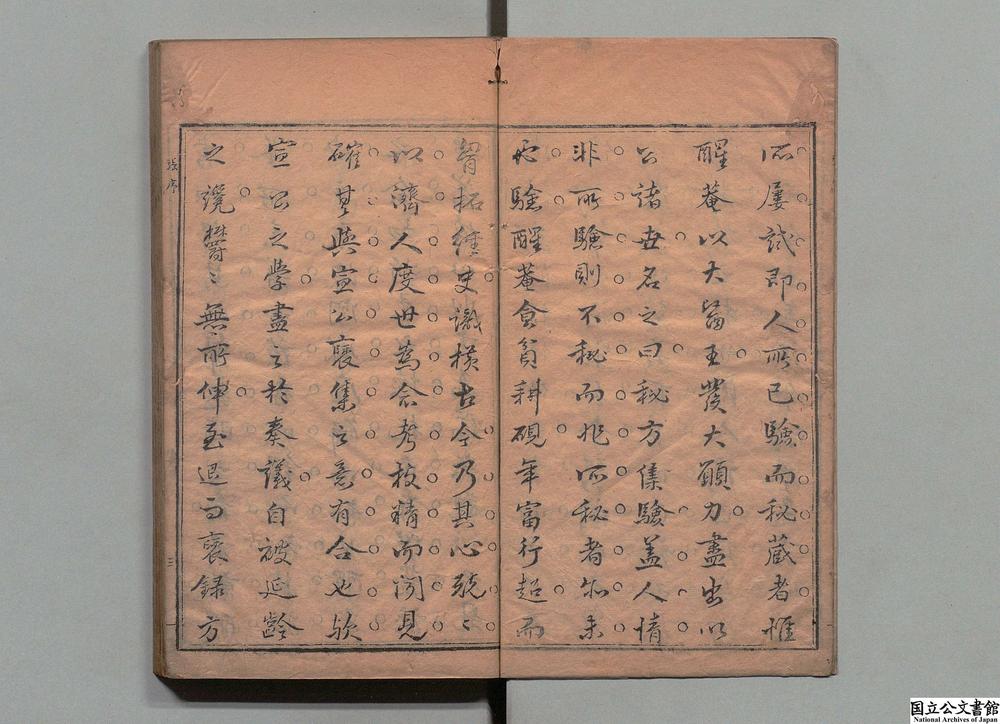 所屢試即人所已驗而秘藏者惟
醒菴以大醫王發大願力盡出以
公諸世名之曰秘方集驗蓋人情
非所驗則不秘而非所秘者亦未
必驗醒菴食貧耕硯年富行超而
胷拓經史識橫古今乃其心兢〻
以濟人度世為念考校精而聞見
確其與宣公裒集之意有合也欤
宣公之學盡之於奏議自被延齡
之䜛鬱〻無所伸至退而裒録方
張序
三
国立公文書館
National Archives of Japan